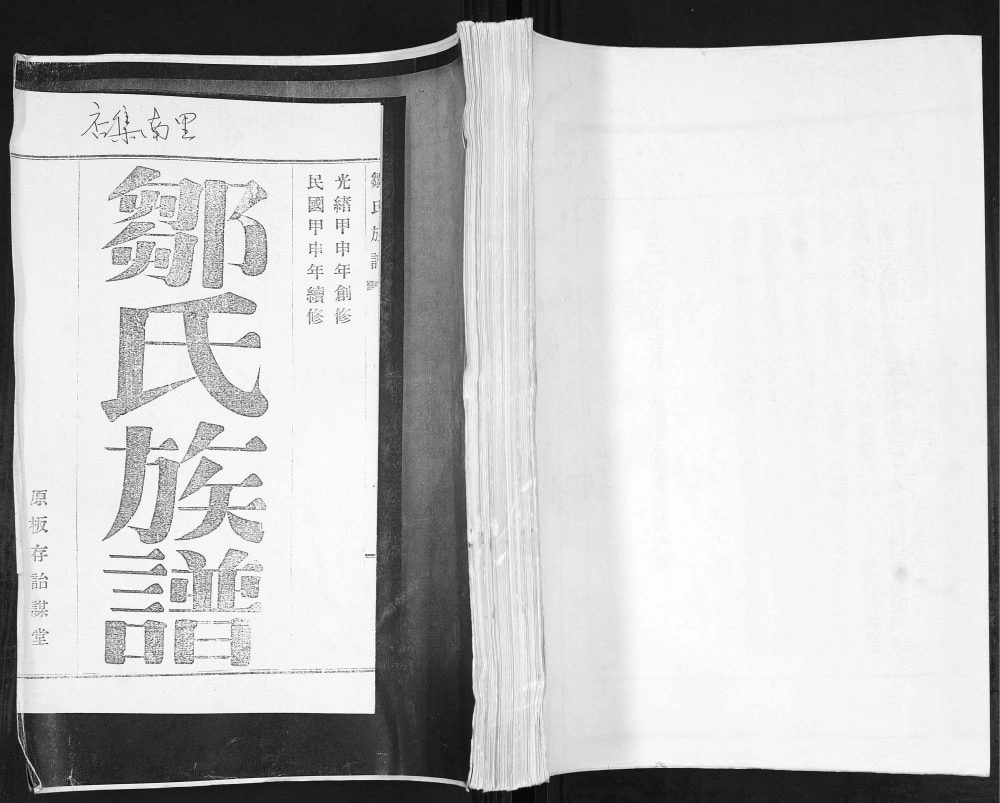 店集南里
鄒氏族譜
光緒甲申年創修
民國甲申年續修
鄒氏族譜
原板存詒謀堂